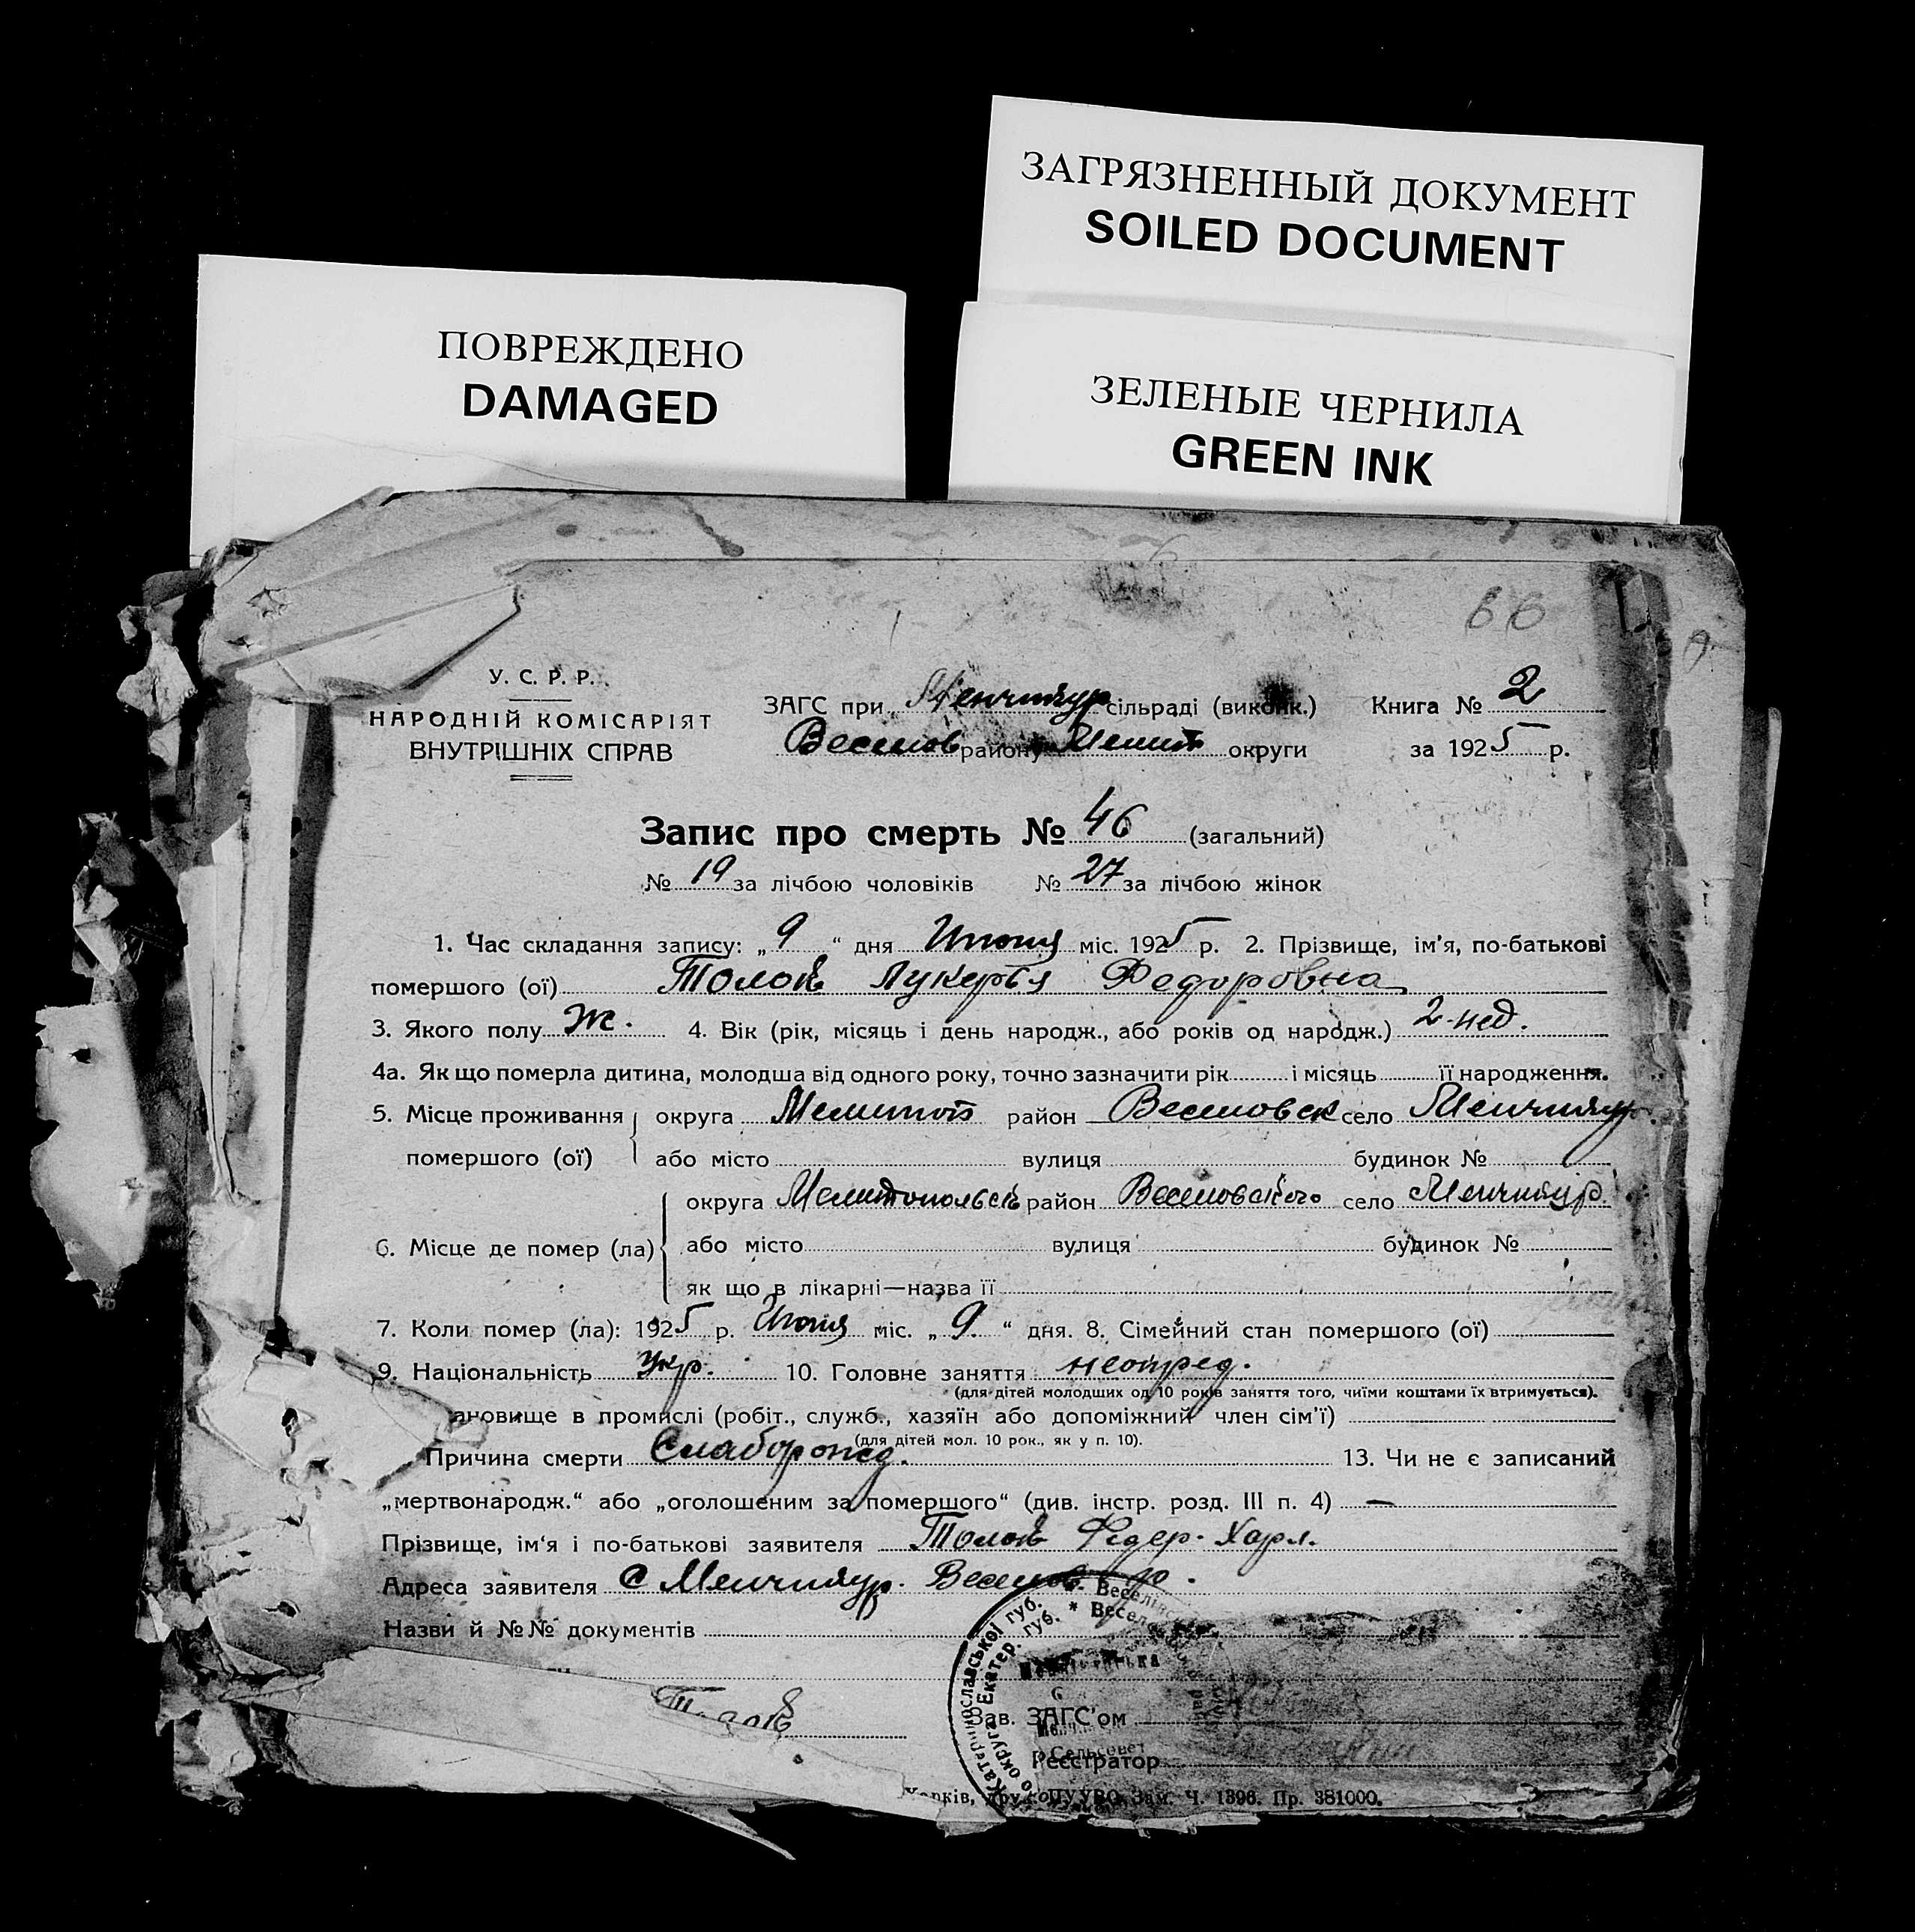 ЗАГРЯЗНЕННЫЙ ДОКУМЕНТ
SOILED DOCUMENT
ПОВРЕЖДЕНО
DAMAGED
ЗЕЛЕНЫЕ ЧЕРНИЛА
GREEN INK
66
У. С. Р. Р.
НАРОДНІЙ КОМІСАРІЯТ
ВНУТРІШНІХ СПРАВ
ЗАГС при Менчикур сільраді (викönк.) Книга № 2
Веселов району Мелит округи за 1925 р.
Запис про смерть № 46 (загальний)
№ 19 за лічбою чоловіків № 27 за лічбою жінок
1. Час складання запису: „ 9 “ дня Июня міс. 1925 р. 2. Прізвище, ім'я, по-батькові
помершого (ої) Толок Лукерья Федоровна
3. Якого полу Ж. 4. Вік (рік, місяць і день народж., або років од народж.) 2-нед.
4а. Як що померла дитина, молодша від одного року, точно зазначити рік і місяць її народження.
5. Місце проживання округа Мелитоп район Веселовск село Менчикур
помершого (ої) або місто вулиця будинок №
округа Мелитопольск район Веселовского село Менчикур.
6. Місце де помер (ла) або місто вулиця будинок №
як що в лікарні—назва її
7. Коли помер (ла): 1925 р. Июня міс. „ 9. “ дня. 8. Сімейний стан помершого (ої)
9. Національність Укр. 10. Головне заняття неопред.
(для дітей молодших од 10 років заняття того, чиїми коштами їх втримується).
ановище в промислі (робіт., служб., хазяїн або допоміжний член сім'ї)
(для дітей мол. 10 рок., як у п. 10).
Причина смерти Слаборожд. 13. Чи не є записаний
„мертвонародж.“ або „оголошеним за помершого“ (див. інстр. розд. III п. 4) —
Прізвище, ім'я і по-батькові заявителя Толок Федер. Харл.
Адреса заявителя С Менчикур. Веселов. р.
Назви й №№ документів
Толок
Катеринославської губ. Веселівс
округа Екатер. губ. * Весел
Сельсовет
Зав. ЗАГС'ом
Реєстратор
Харків, друк. ПУУВО Зам. Ч. 1396. Пр. 381000.